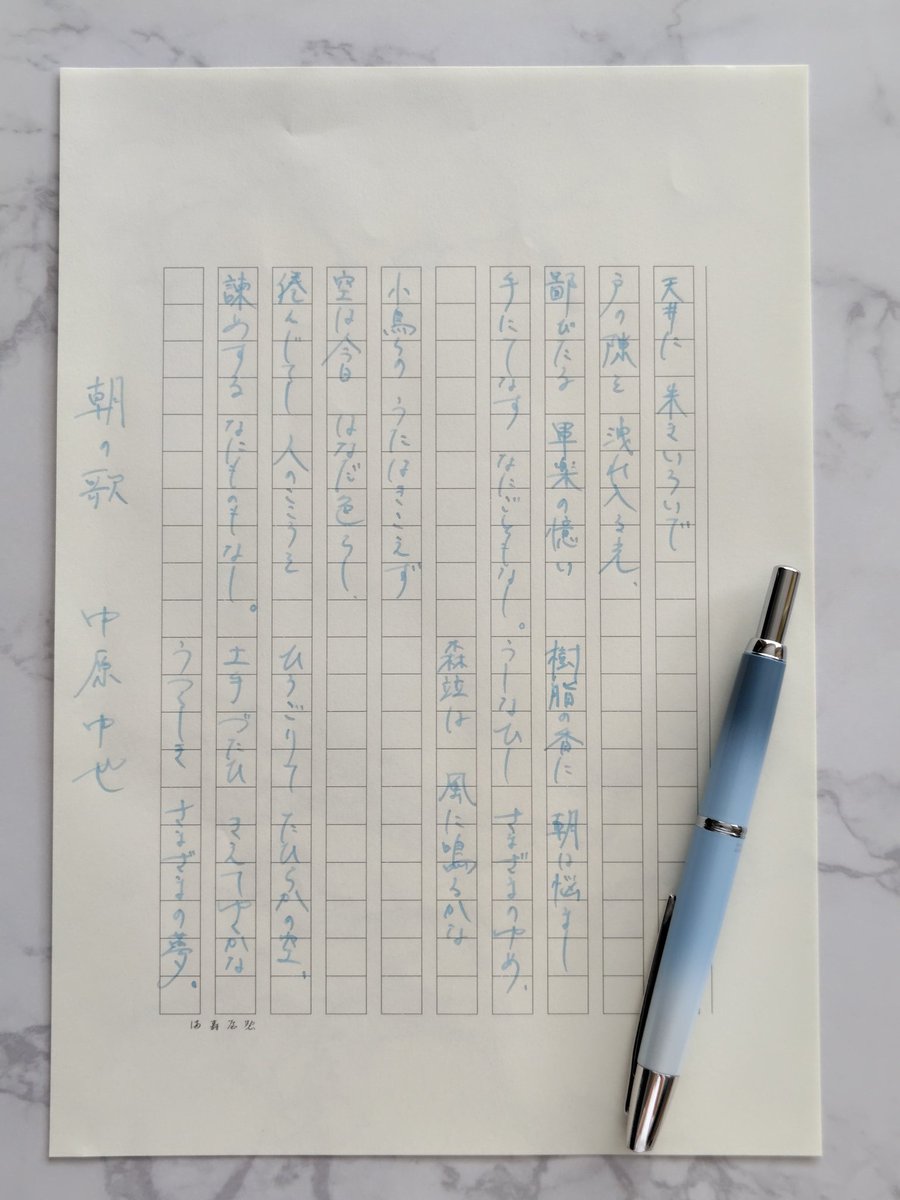 天井に 朱きいろいで
戸の隙を 洩れ入る光、
鄙びたる 軍楽の憶い
手にてなす なにごともなし。
小鳥らの うたはきこえず
空は今日 はなだ色らし、
倦んじてし 人のこころを
諫めする なにものもなし。
樹脂の香に 朝は悩まし
うしなひし さまざまのゆめ、
森竝は 風に鳴るかな
ひろごりて たひらかの空、
土手づたひ きえてゆくかな
うつくしき さまざまの夢。
朝の歌 中原中也